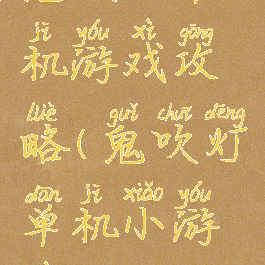 jī yóu xì gōng
机游戏攻
lüè guǐ chuī dēng
略(鬼吹灯
dān jī xiǎo yóu
单机小游